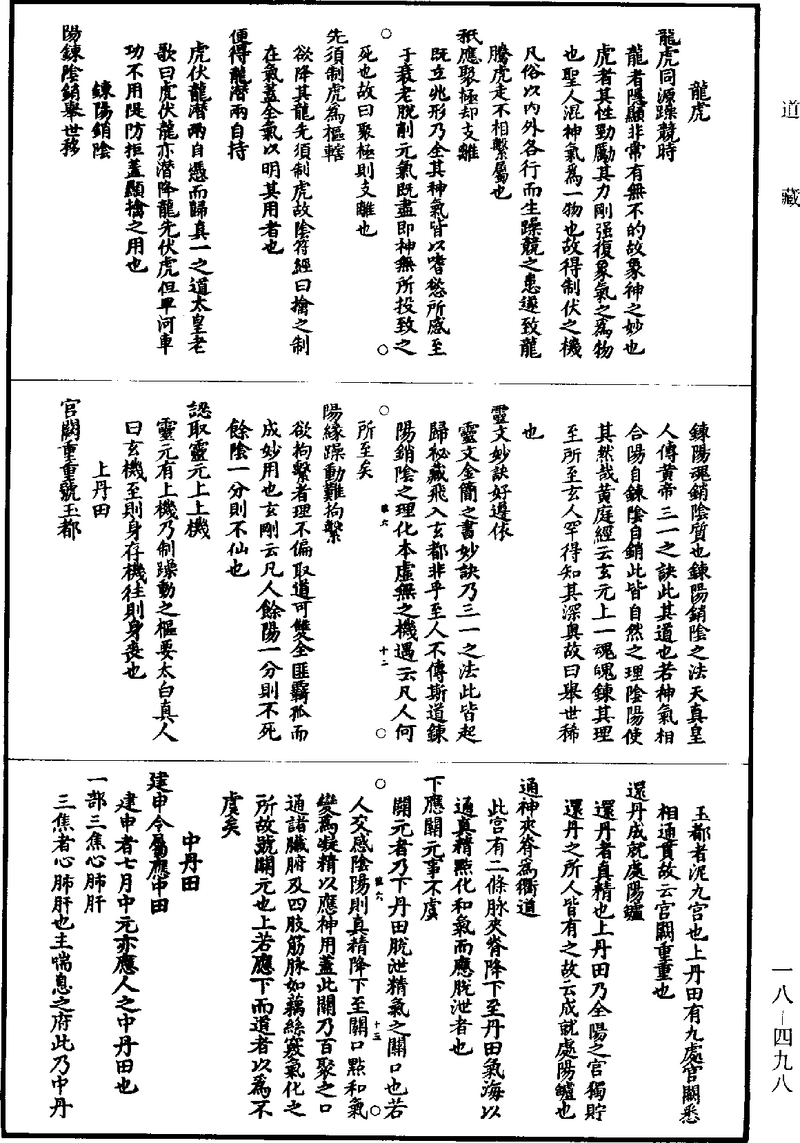 道藏
龍虎
龍虎同源躁競時
龍者隱顯非常有無不的故象神之妙也
虎者其性勁勵其力剛强復象氣之爲物
也聖人混神氣爲一物也故得制伏之機
凡俗以内外各行而生躁競之患遂致龍
騰虎走不相繫屬也
秖應聚極却支離
既立兆形乃全其神氣皆以嗜慾所感至
于衰老脱削元氣既盡即神無所投致之
死也故曰聚極則支離也
先須制虎爲樞轄
欲降其龍先須制虎故陰符經曰擒之制
在氣蓋全氣以明其用者也
便得龍潛兩自持
虎伏龍潛兩自慿而歸真一之道太皇老
歌曰虎伏龍亦潛降龍先伏虎但畢河車
功不用隄防拒蓋顯擒之用也
鍊陽銷陰
陽鍊陰銷舉世移
鍊陽魂銷陰質也鍊陽銷陰之法天真皇
人傳黄帝三一之訣此其道也若神氣相
合陽自鍊陰自銷此皆自然之理陰陽使
其然哉黄庭經云玄元上一魂魄鍊其理
至所至玄人罕得知其深奥故曰舉世稀
也
靈文妙訣好遵依
靈文金簡之書妙訣乃三一之法此皆起
歸秘藏飛入玄都非乎至人不傳斯道鍊
陽銷陰之理化本虛無之機遇云凡人何
所至矣
陽緣躁動難拘繫
欲拘繫者理不偏取道可雙全匪羈孤而
成妙用也玄剛云凡人餘陽一分則不死
餘陰一分則不仙也
認取靈元上上機
靈元有上機乃制躁動之樞要太白真人
曰玄機至則身存機往則身喪也
上丹田
官闕重重號玉都
玉都者泥九宫也上丹田有九處官闕悉
相通貫故云官闕重重也
還丹成就處陽鑪
還丹者真精也上丹田乃全陽之宫獨貯
還丹之所人皆有之故云成就處陽鑪也
通神夾脊爲衢道
此宫有二條脉夾脊降下至丹田氣海以
通真精點化和氣而應脱泄者也
下應關元事不虚
關元者乃下丹田脱泄精氣之關口也若
人交感陰陽則真精降下至關口點和氣
變爲凝精以應神用蓋此關乃百聚之口
通諸臟腑及四肢筋脉如藕絲竅氣化之
所故號關元也上若應下而道者以爲不
虚矣
中丹田
建申令屬應中田
建申者七月中元亦應人之中丹田也
一部三焦心肺肝
三焦者心肺肝也主喘息之府此乃中丹
一八—四九八